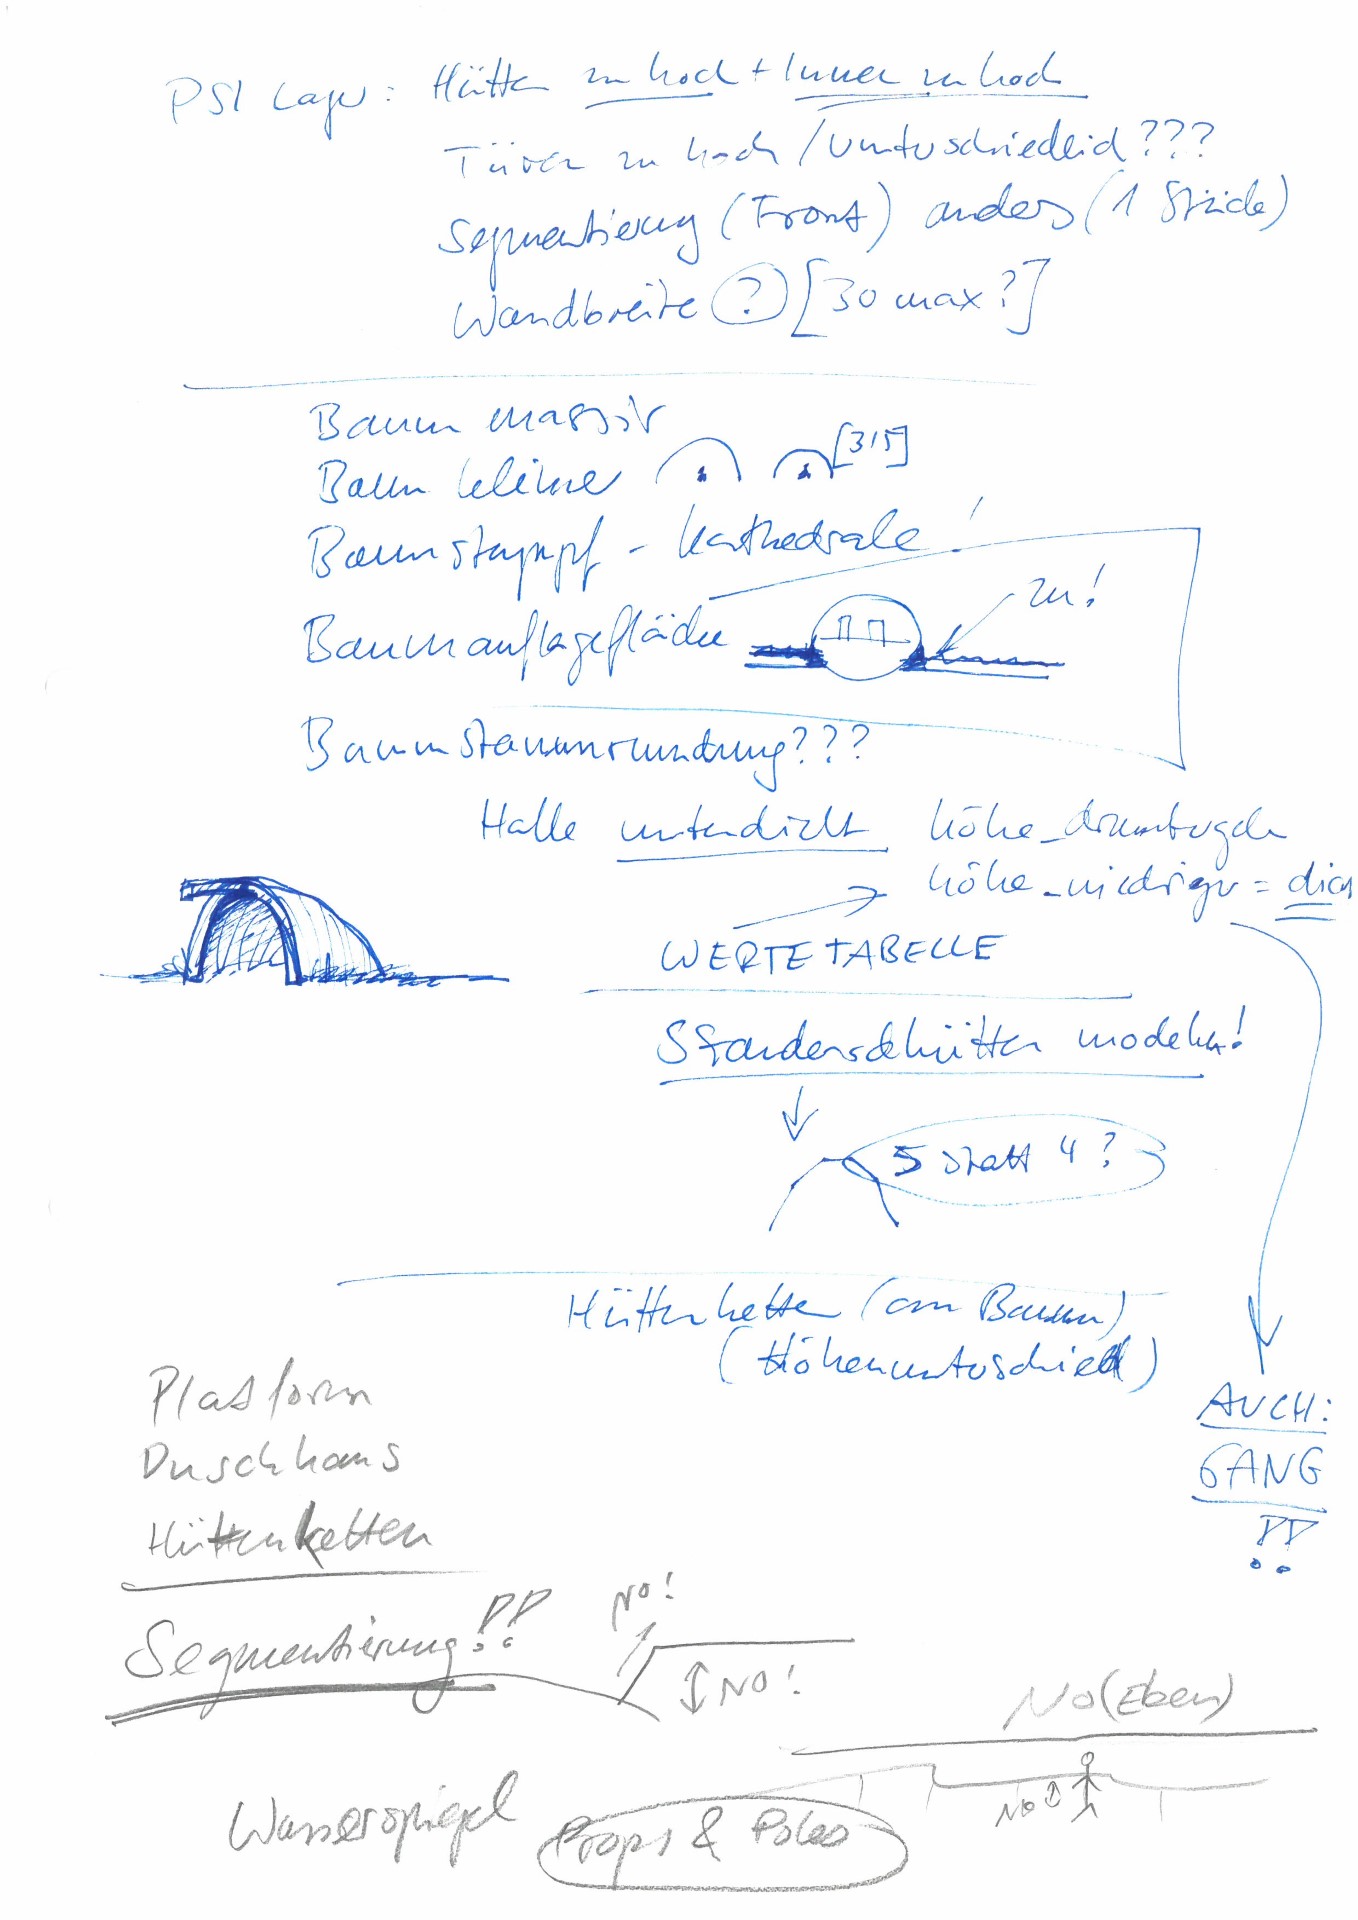 PSI Lager: Hütten zu hoch + Innen zu hoch
Türen zu hoch / unterschiedlich???
Segmentierung (Front) anders (1 Stück)
Wandbreite ? [30 max?]
Baum massiv
Baum kleiner [3/5]
Baumstumpf - Kathedrale!
Baumauflagefläche zu!
Baumstammrundung???
Halle
höhe_drumbogen
höhe_niedriger = dick
WERTETABELLE
Standardhütten modeln!
5 statt 4?
Hüttenkette (am Baum)
(Höhenunterschied)
AUCH:
GANG
!!
Platform
Duschhaus
Hüttenketten
Segmentierung!!
NO!
NO!
NO (Eben)
NO
Wasserspiegel
Props & Poles